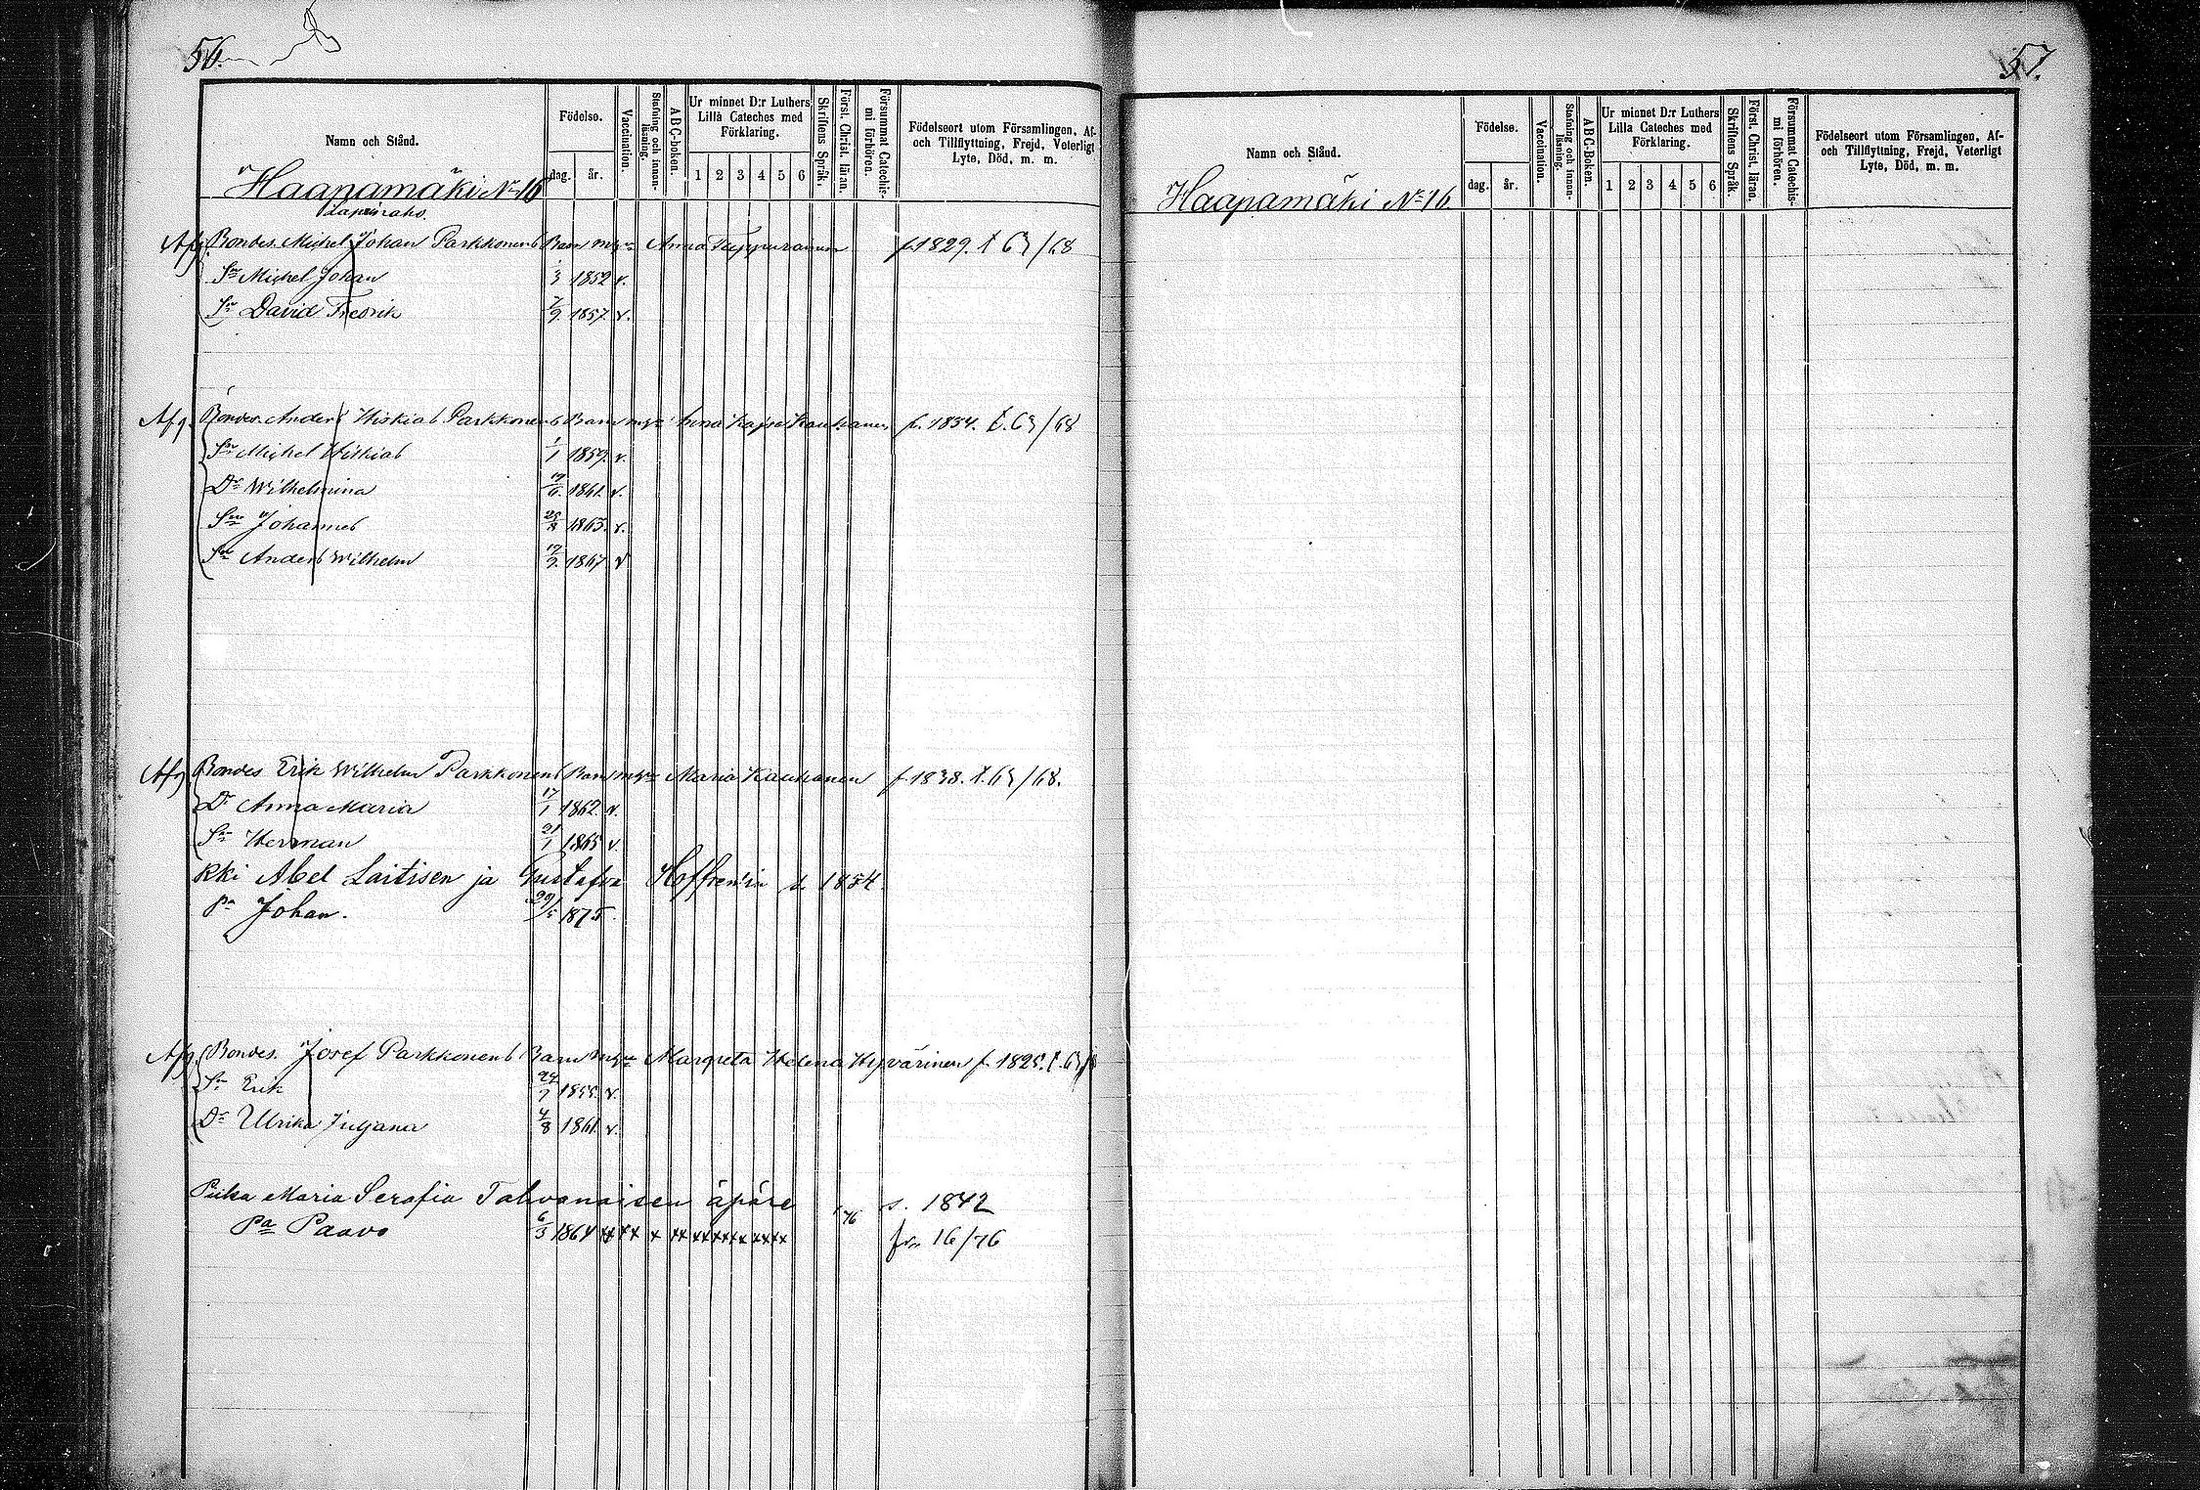 56.
Namn och Stånd.
Födelse.
dag. år.
Vaccination.
Stafning och innan-läsning.
ABC-boken.
Ur minnet D:r Luthers Lilla Cateches med Förklaring.
1 2 3 4 5 6
Skriftens Språk.
Först. Christ. läran.
Försummat Catechis-mi förhören.
Födelseort utom Församlingen, Af- och Tillflyttning, Frejd, Veterligt Lyte, Död, m. m.
Haapamäki No 16
Bondes. Michel Johan Parkkonens Barn m. Anna Tuppurainen f. 1829. t. 63/68
Sn Michel Johan 1/3 1852 v.
Sn David Fredrik 7/9 1857. v.
Afg. Bondes. Anders Hiskias Parkkonens Barn m. Anna Kajsa Kauhanen f. 1834. t. 63/68
Sn Michel Hiskias 1/1 1859. v.
Dr Wilhelmina 1861. v.
Sn Johannes 1863. v.
Sn Anders Wilhelm 17/9 1867 v
Afg. Bondes Erik Wilhelm Parkkonens Barn m. Maria Kauhanen f. 1838. t. 63/68.
Dr Anna Maria 17/1 1862. v.
Sn Herman 21/1 1865 v.
Rki Abel Laitisen ja Gustafva Hoffren'in s. 1854.
Pa Johan. 29/5 1875.
Afg. Bondes. Josef Parkkonens Barn m. Margreta Helena Hyvärinen f. 1825. t. 63/
Sn Erik 24/7 1855. v.
Dr Ulrika Juljana 4/8 1861. v.
Piika Maria Serafia Tahvanaisen äpäre s. 1842
Pa Paavo 6/3 1864 fr. 16/76
57.
Namn och Stånd.
Födelse.
dag. år.
Vaccination.
Stafning och innan-läsning.
ABC-Boken.
Ur minnet D:r Luthers Lilla Cateches med Förklaring.
1 2 3 4 5 6
Skriftens Språk.
Först. Christ. läran.
Försummat Catechis-mi förhören.
Födelseort utom Församlingen, Af- och Tillflyttning, Frejd, Veterligt Lyte, Död, m. m.
Haapamäki No 16.